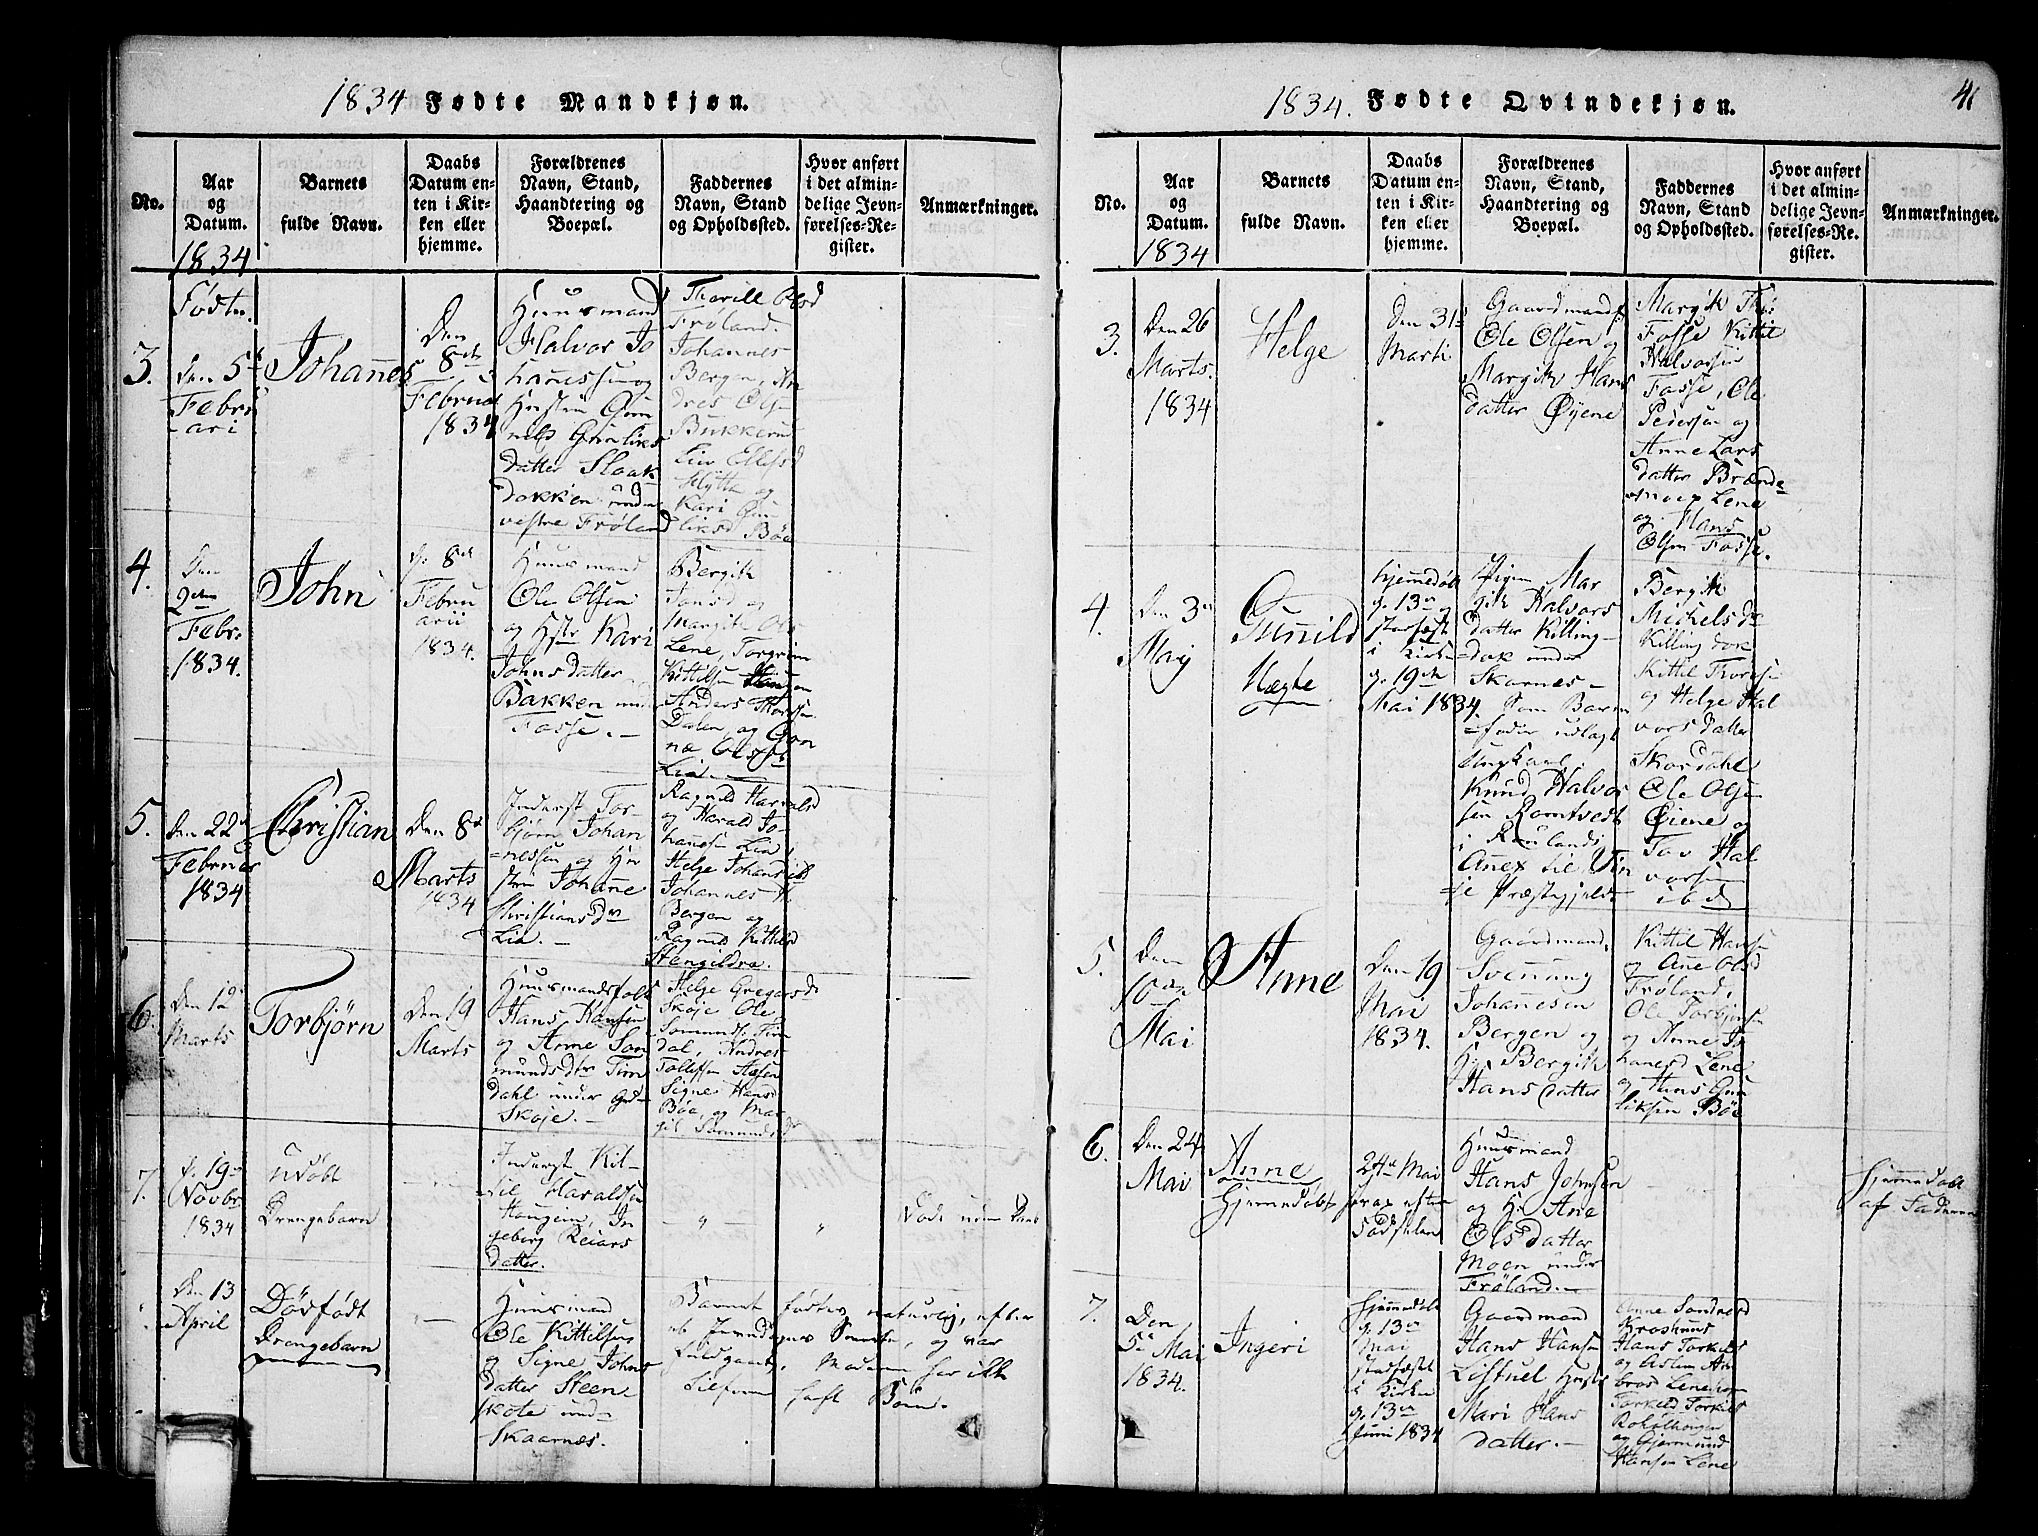 1834 Fødte Mandkjøn.
No.
Aar
og
Datum.
1834
Barnets
fulde Navn.
Daabs
Datum en-
ten i Kir-
ken eller
hjemme.
Forældrenes
Navn, Stand,
Haandtering og
Boepæl.
Faddernes
Navn, Stand
og Opholdssted.
Hvor anført
i det almin-
delige Jevn-
førelses-Re-
gister.
Anmærkninger.
3.
Den 5
Febru
-ari
Johannes
Den
8de
Februar
1834
Huusmand
Halvor Jo
hannessen og
Hustru Gun
nild Gunliks
datter Sloak
dokken under
vestre Frøland
Thorill Olsd
Frøland.
Johannes
Bergen, An
dres Ols
Bukkerud
Liv
Kari Gun
liksd Böe
4.
Den
2den
Febr.
1834.
John
d. 8de
Febru
arii
1834.
Huusmand
Ole Olsen
og Hstr Kari
Johnsdatter
Bakken under
Fosse.
Bergith
Jonsd og
Margith Ols
Lene, Torgrim
Kittilsen Haugen
Anders Thorsen
Dalen, og Gun
Lia
5.
Den 22d
Februar
1834
Christian
Den 8de
Marts
1834
Inderst Tor-
bjørn Johan
=nessen og Hu
stru Johanne
Christiansdr
Lia.
Ragnild Haralsd
og Harald Jo-
hannesen Lia,
Helge Johansd
Johannes
Bergen og
Ragnild Kittilsd
Stengildra.
6.
Den 12
Marts
Torbjørn
Den 19
Marts
Huusmandsfolk
Hans Hansen
og Anne Som
mundsdtr Tim
dahl under
Skoje.
Helge Gregarsd
Skoje Ole
Somunds. Tim
dal, Andres
Tollefsen Aasen
Signe Hansd
Böe, og Mar
git Somundsdr
7.
d. 19
Novbr
1834
Udøbt
Drengebarn
Inderst Kit-
til Haraldsen
Haugen, In
geborg Reiars
datter.
"
"
Døde uden Daab
Den 13
April
Dödfödt
Drengebarn
Huusmand
Ole Kittilsen
og Signe Johns
datter Steen
skote und-
Skaarnes.
Barnet födtes naturlig, efter
Svende, og var
fuldgaaet, Moderen har ikke
havt Börn.
1834. Fødte Qvindekjøn.
41
No.
Aar
og
Datum.
1834
Barnets
fulde Navn.
Daabs
Datum en-
ten i Kir-
ken eller
hjemme.
Forældrenes
Navn, Stand,
Haandtering og
Boepæl.
Faddernes
Navn, Stand
og Opholdssted.
Hvor anført
i det almin-
delige Jevn-
førelses-Re-
gister.
Anmærkninger.
3.
Den 26
Marts.
1834
Helge
Den 31te
Marti
Gaardmand
Ole Olsen og
Margith Hans
datter Øyene
Margith
Fosse Kittil
Halvorsen
Fosse, Ole
Pedersen og
Anne Lars
datter Brænde
moex Lene
og Hans
Olsen Fosse.
4.
Den 3
Maij
Gunild
Hæghe
Hjemmedøbt
d. 13de og
stadfæst
i Kirken
d. 19de
Mai 1834.
Pigen Mar
gith Halvors
datter Killing-
=dok under
Skarnes-
Som Barne
=fader udlagt
Ungkarl
Knud Halvor
sen Romtvedt
i Raulands
Anex til Vin
je Præstegjeld
Bergith
Michelsdr
Killingdok
Kittil Thorsen
og Helge Hal
vorsdatter
Skordahl
Ole Olsen
Øiene og
Tov Hal
vorsen
ibd
5.
Den
10de
Mai
Anne
Den 19
Mai
1834.
Gaardmand.
Svennung
Johannesen
Bergen og
H. Bergith
Hansdatter
Kittil Hansen
og Ane Olsd
Frøland,
Ole Torbjøns
og Anne Jo
hanesd Lene
og Hans Gun
liksen Böe
6.
Den 24
Mai
Anne
Hjemmedøbt
24de Mai
strax efter
Födselen
Huusmand
Hans Johnsen
og H. Ane
Olsdatter
Moen under
Fröland.
Hjemmedøbt
af Faderen
7.
Den
5te Mai
1834.
Ingeri
Hjemmedøbt
d. 13de
Mai
stadfæstet
i Kirken
d. 13de
Juni 1834
Gaardmand
Hans Hansen
Lofthuel Hustr
Mari Hans
datter.
Anne Sondresd
Hans Torkels
og Aslau Am
brosd Lene
Torkeld Torkels
og Gjermund
Hansen Lene